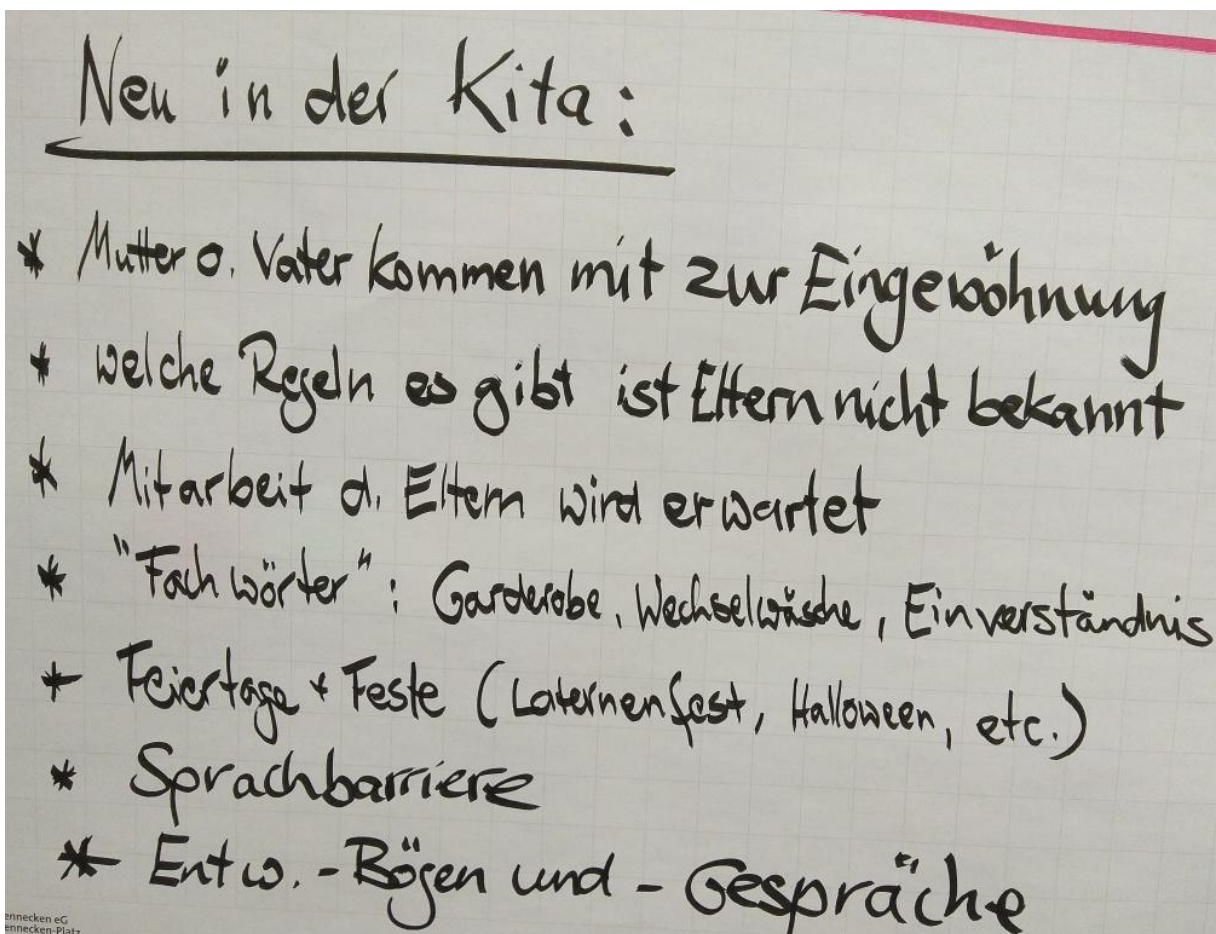 Neu in der Kita:
* Mutter o. Vater kommen mit zur Eingewöhnung
* welche Regeln es gibt ist Eltern nicht bekannt
* Mitarbeit d. Eltern wird erwartet
* "Fachwörter": Garderobe, Wechselwäsche, Einverständnis
* Feiertage + Feste (Laternenfest, Halloween, etc.)
* Sprachbarriere
* Entw.-Bögen und -Gespräche
ennecken eG
ennecken-Platz